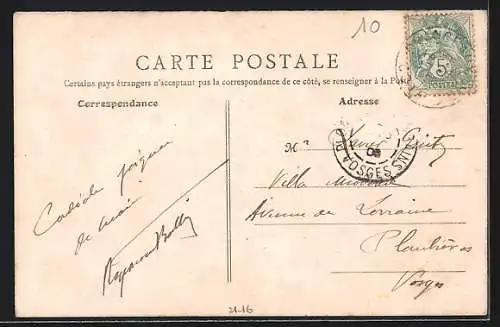 10
CARTE POSTALE
Certains pays étrangers n'acceptant pas la correspondance de ce côté, se renseigner à la Poste
Correspondance
Adresse
5
Mr Xavier
VOSGES
08
Villa
Avenue de Lorraine
Plombières
Vosges
Cordiale poignée
de main
Raymond
21-16